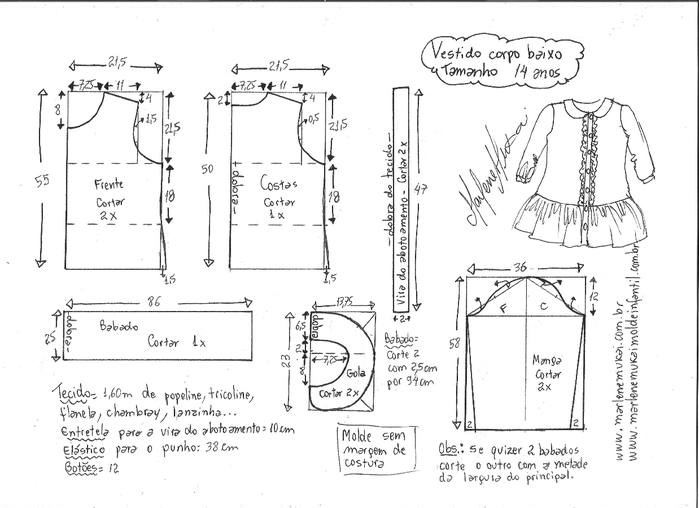 Vestido corpo baixo
Tamanho 14 anos
21,5
7,25
11
4
8
1,5
21,5
55
Frente
Cortar
2x
18
1,5
21,5
7,25
11
2
4
0,5
21,5
50
dobra
Costas
Cortar
1x
18
1,5
dobra do tecido
Vira do abotoamento - Cortar 2x
47
2
Marlene Mukai
86
25
dobra
Babado
Cortar 1x
13,75
6,5
dobra
2
23
7,25
8
Gola
Cortar 2x
Babado=
Corte 2
com 2,5cm
por 94cm
36
12
F
C
58
Manga
Cortar
2x
2
2
www.marlenemukai.com.br
www.marlenemukaimoldeinfantil.com.br
Tecido= 1,60m de popeline, tricoline,
flanela, chambray, lanzinha...
Entretela para a vira do abotoamento=10cm
Elástico para o punho: 38cm
Botões= 12
Molde sem
margem de
costura
Obs.: Se quizer 2 babados
corte o outro com a metade
da largura do principal.